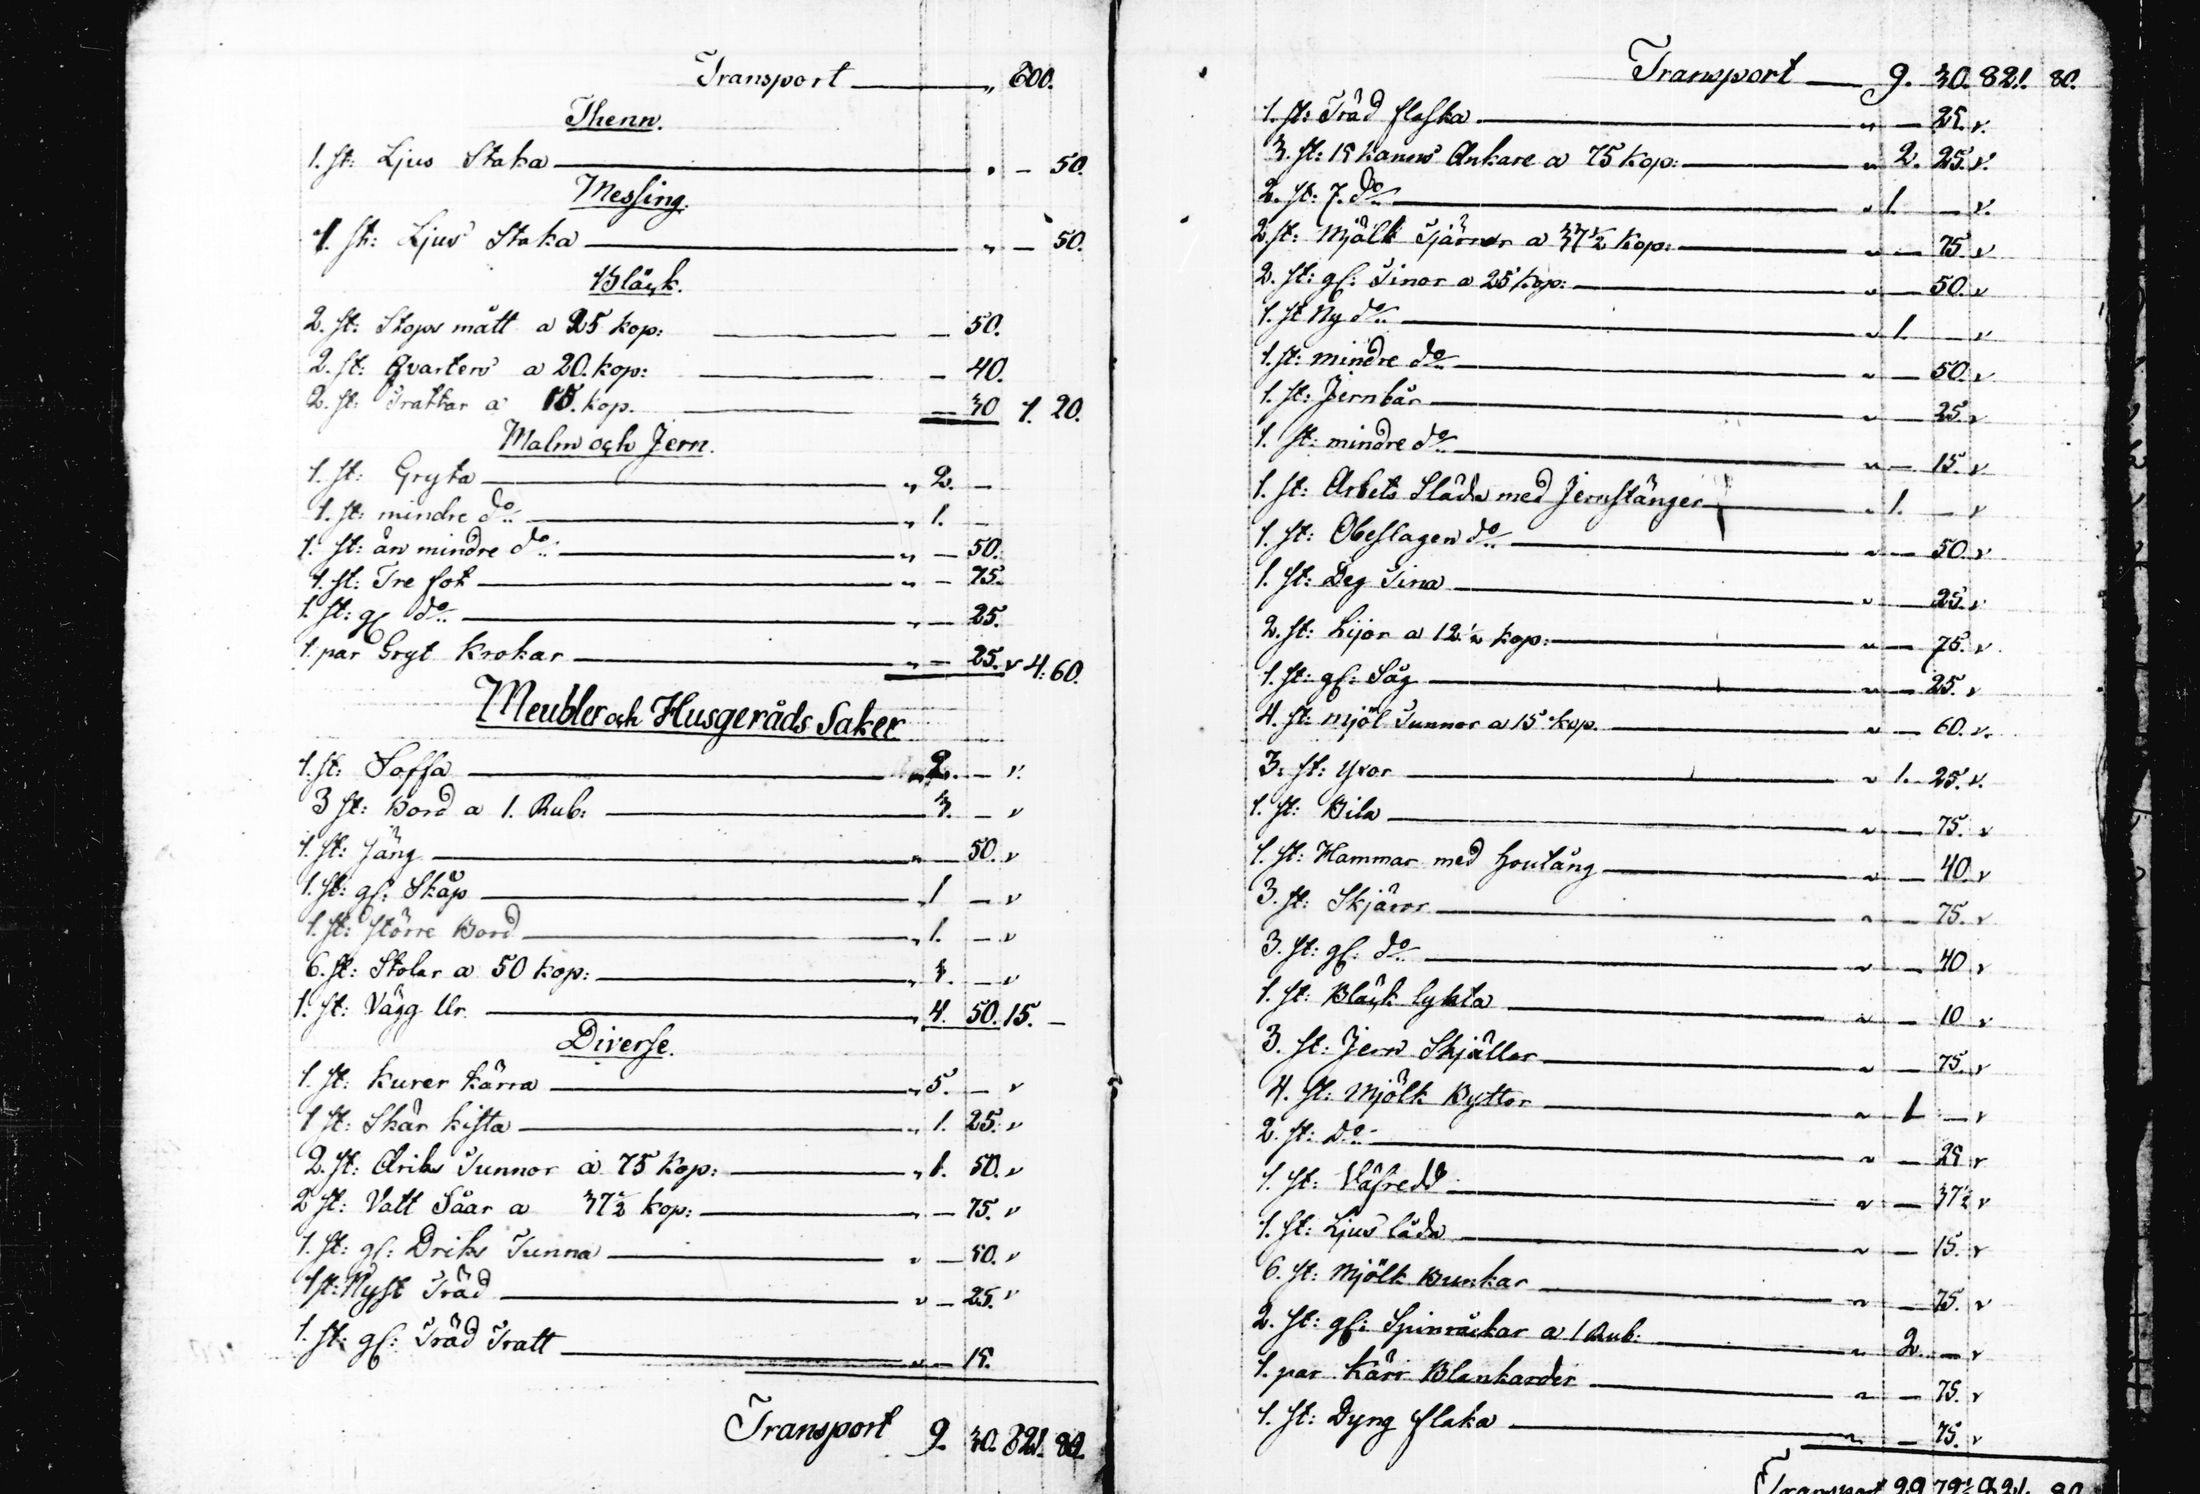 Transport — „ 800.
Thenn.
1. st: Ljus Staka — „ — 50.
Messing.
1. st: Ljus Staka — „ — 50.
Bläck.
2. st: Stops mått a 25 kop: — — 50.
2. st: Qvarters a 20. kop: — — 40.
2. st: Trattar a 15. kop. — — 30 1. 20.
Malm och Jern.
1. st: Gryta — „ 2. —
1. st: mindre do — „ 1. —
1. st: än mindre do — „ — 50.
1. st: Tre fot — „ — 75.
1. st: gl do — „ — 25.
1. par Gryt Krokar — „ — 25. v 4. 60.
Meubler och Husgeråds Saker
1. st: Soffa — „ 2. — v.
3 st: Bord a 1. Rub: — 3. — v
1. st: Säng — „ — 50. v
1. st: gl: Skåp — „ 1 — v
1. st: större Bord — „ 1. — v
6. st: Stolar a 50 kop: — „ 3. — v
1. st: Vägg Ur — „ 4. 50. 15. —
Diverse.
1. st: Kurer kärra — „ 5. — v
1 st: Skär kista — „ 1. 25. v
2. st: Driks Tunnor a 75 Kop: — „ 1. 50. v
2 st: Vatt Såar a 37½ kop: — „ — 75. v
1. st: gl: Driks Tunna — „ — 50. v
1 st: Nyst Träd — „ — 25. v
1. st: gl: Träd Tratt — „ — 15.
Transport 9. 30. 821. 80.
Transport — 9. 30. 821. 80.
1. st: Träd flaska — „ — 25. v.
3. st: 15 kanns Ankare a 75 Kop: — „ 2. 25. v.
2. st: 7. do — „ 1. — v.
2. st: Mjölk Tjärnor a 37½ Kop: — „ — 75. v
2. st: gl: Tinor a 25 kop: — „ — 50. v
1. st Ny do — „ 1. — v
1. st: mindre do — „ — 50. v
1. st: Jernbär — „ — 25. v
1. st: mindre do — „ — 15. v
1. st: Arbets Släda med Jernstänger — „ 1. — v
1. st: Obeslagen do — „ — 50. v
1. st: Deg Tina — „ — 25. v
2. st: Lijor a 12½ kop: — „ — 75. v
1. st: gl: Såg — „ — 25. v
4. st: mjöl Tunnor a 15 kop. — „ — 60. v.
3. st: Yxor — „ 1. 25. v.
1. st: Bila — „ — 75. v
1. st: Hammar med Houtång — „ — 40. v
3. st: Skjäror — „ — 75. v
3. st: gl: do — „ — 40 v
1. st: Bläck lykta — „ — 10 v
3. st: Jern Skjällor — „ — 75. v
4. st: Mjölk Byttor — „ 1 — v
2. st: Do — „ — 25 v
1. st: Väfredd — „ — 37½ v
1. st: Ljus låda — „ — 15. v
6. st: Mjölk Bunkar — „ — 75. v
2. st: gl: Spinråckar a 1 Rub: — „ 2. — v
1. par Kärr Blankarder — „ — 75. v
1. st: Dyng flaka — „ — 75. v
Transport 29 72½ 821. 80